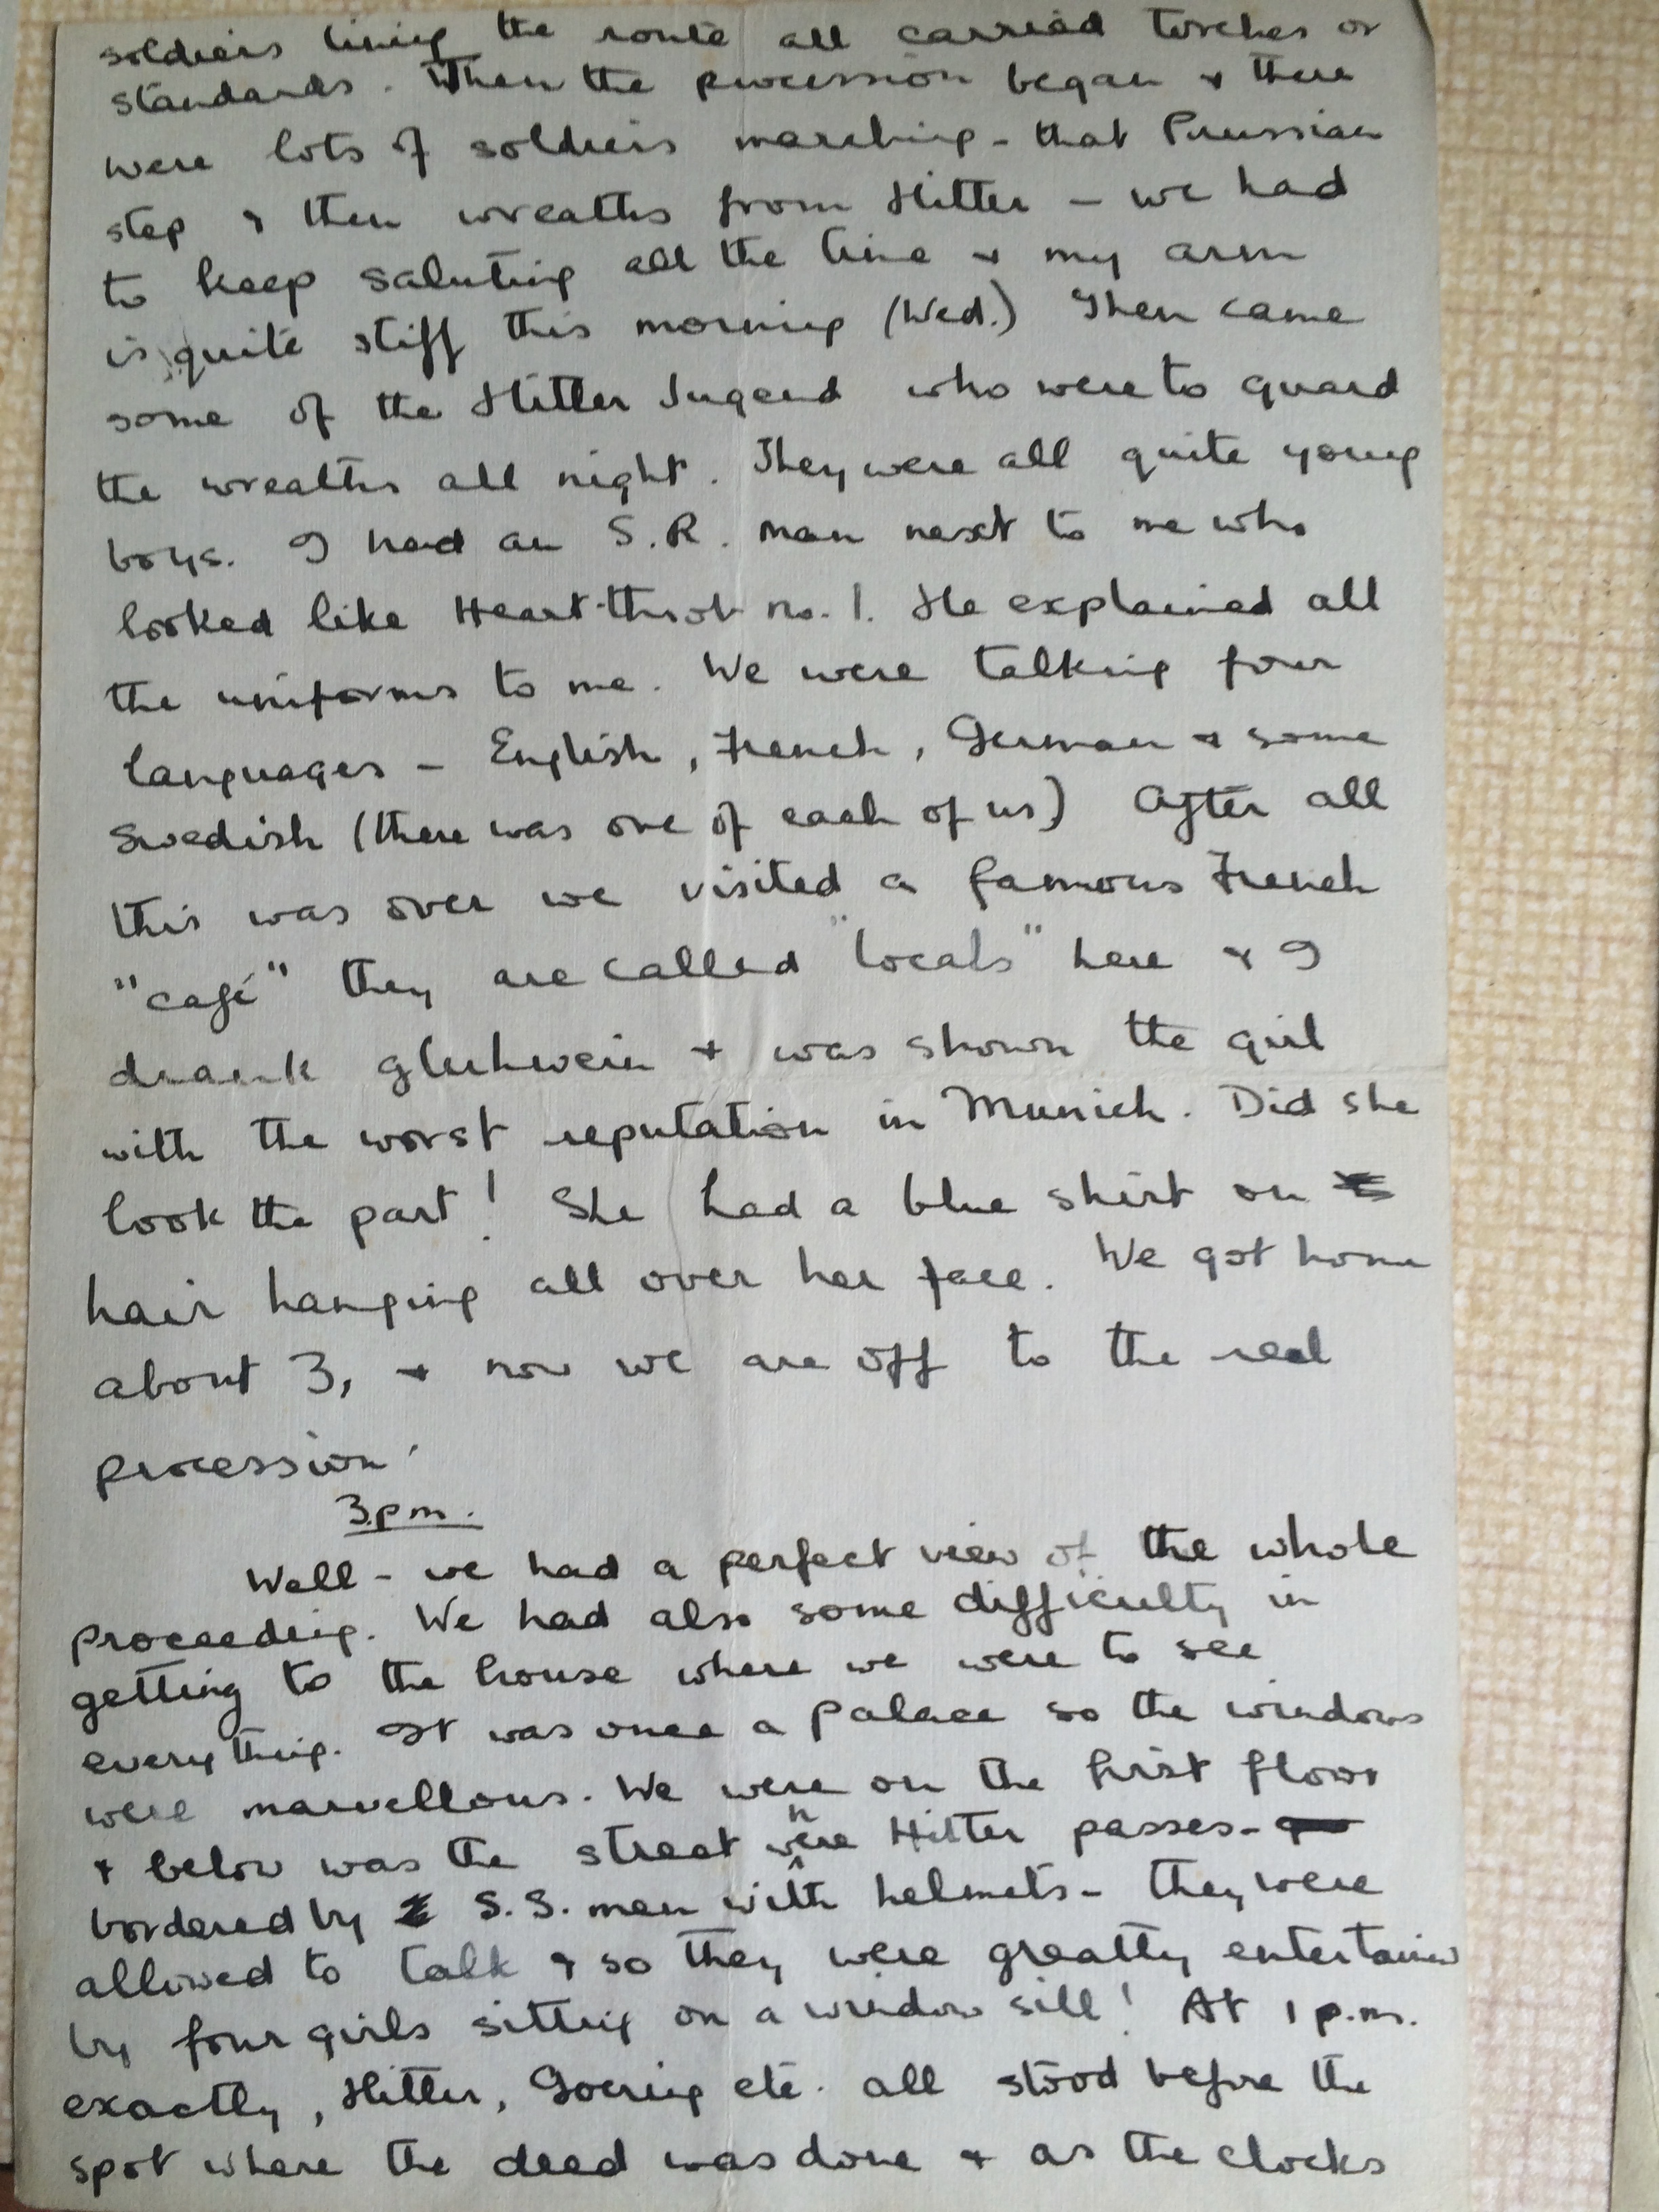 soldiers lining the route all carried torches or
standards. When the procession began & there
were lots of soldiers marching - that Prussian
step & then wreaths from Hitler - we had
to keep saluting all the time & my arm
is quite stiff this morning (Wed.) Then came
some of the Hitler Jugend who were to guard
the wreaths all night. They were all quite young
boys. I had an S.R. man next to me who
looked like Heart-throb no. 1. He explained all
the uniforms to me. We were talking four
languages - English, French, German & some
Swedish (there was one of each of us) After all
this was over we visited a famous French
"café" they are called "locals" here & I
drank gluhwein & was shown the girl
with the worst reputation in Munich. Did she
look the part! She had a blue shirt on
hair hanging all over her face. We got home
about 3, & now we are off to the real
procession!
3.pm.
Well - we had a perfect view of the whole
proceeding. We had also some difficulty in
getting to the house where we were to see
everything. It was once a palace so the windows
were marvellous. We were on the first floor
& below was the street where Hitler passes -
bordered by S.S. men with helmets - they were
allowed to talk & so they were greatly entertained
by four girls sitting on a window sill! At 1 p.m.
exactly, Hitler, Goering etc. all stood before the
spot where the deed was done & as the clocks